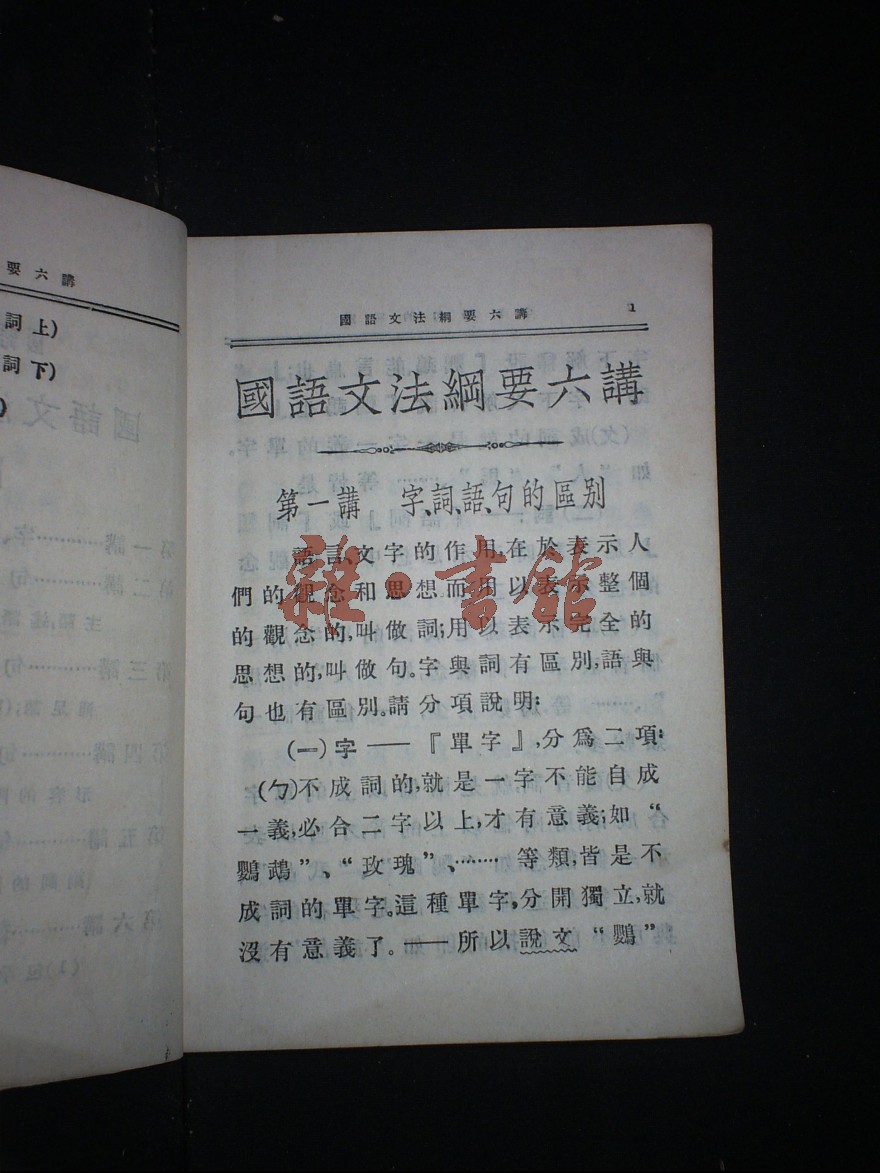 要六講
詞上)
詞下)
)
國語文法綱要六講 1
國語文法綱要六講
第一講 字、詞、語、句的區别
語言、文字的作用,在於表示人
們的觀念和思想而用以表示整個
的觀念的,叫做詞;用以表示完全的
思想的,叫做句。字與詞有區別,語與
句也有區別。請分項說明:
(一)字——『單字』,分爲二項:
(ㄅ)不成詞的,就是一字不能自成
一義,必合二字以上,才有意義;如“
鸚鵡”、“玫瑰”、……等類,皆是不
成詞的單字。這種單字,分開獨立,就
沒有意義了。——所以說文“鸚”
雜·書館